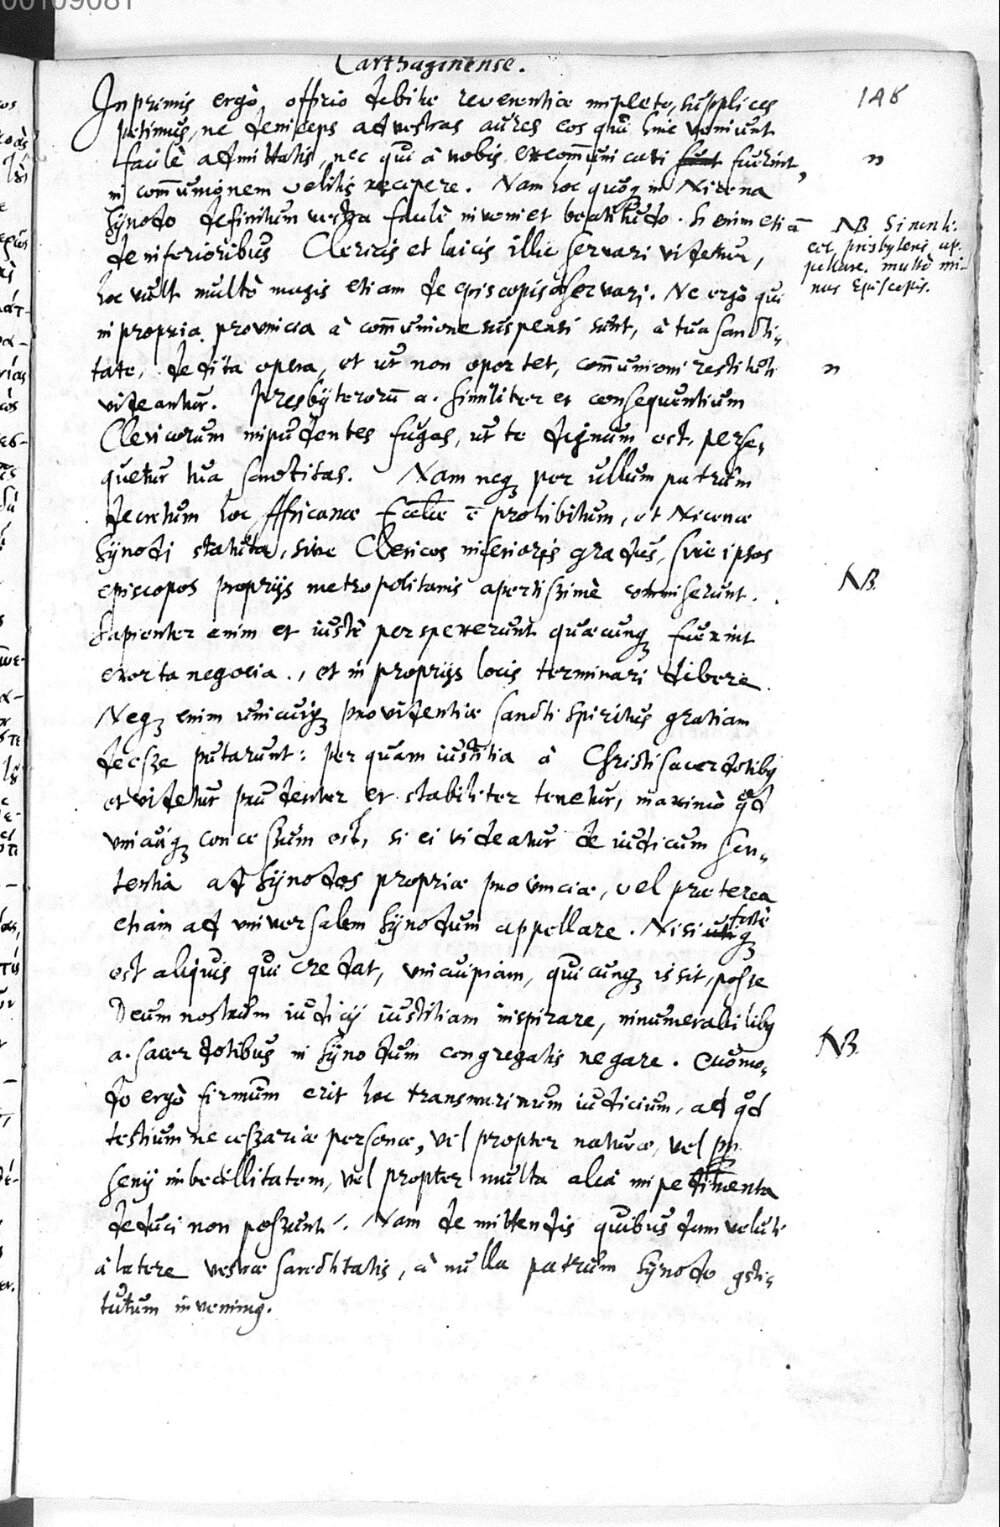 00109081
Carthaginense.
148
Inprimis ergò, officio debitæ reverentiæ impleto, supplices
petimus, ne deniceps ad vestras aures eos qui hinc veniunt
facilè admittatis, nec qui à nobis excommunicati fuerint,
in com̄unionem velitis recipere. Nam hoc quoq; in Nicena
Synodo definitum vestra facilè inveniet beatitudo. Si enim etiā
de inferioribus Clericis et laicis illic servari videtur,
hoc vult multò magis etiam de episcopis observari. Ne ergò qui
in propria provincia à com̄unione suspensi sunt, à tua sancti=
tate, dedita opera, et ut non oportet, com̄unioni restituti
videantur. Presbyterorū a. similiter et consequentium
Clericorum impudentes fugas, ut te dignum est, perse=
quetur tua sanctitas. Nam neq; per ullum patrum
decretum hoc Africanæ Eccliæ ē prohibitum, et Nicenæ
Synodi statuta, sive Clericos inferioris gradus, sive ipsos
episcopos proprijs metropolitanis apertissimè commiserunt.
Sapienter enim et iustè perspexerunt quæcunq; fuerint
exorta negocia, et in proprijs locis terminari debere.
Neq; enim unicuiq; providentiæ sancti Spiritus gratiam
deesse putarunt: per quam iustitia à Christi sacerdotibq
et videtur prudenter et stabiliter tenetur, maximè qd
unicuiq; concessum est, si ei videatur de iudicum sen=
tentia ad Synodos propriæ provinciæ, vel præterea
etiam ad universalem Synodum appellare. Nisi fortè
est aliquis qui credat, unicuipiam, quicunq; is sit, posse
Deum nostrum iudicij iustitiam inspirare, innumerabilibq
a. sacerdotibus in Synodum congregatis negare. Quomo=
do ergò firmum erit hoc transmarinum iudicium, ad qd
testium necessariæ personæ, vel propter naturæ, vel pp
senij imbecillitatem, vel propter multa alia impedimenta
deduci non possunt. Nam de mittendis quibusdam veluti
à latere vestræ sanctitatis, à nulla patrum Synodo gsti=
tutum invenimq.
n
NB Si non li-
cet presbyteris ap-
pellare. multò mi-
nus Episcopis.
n
NB.
NB.